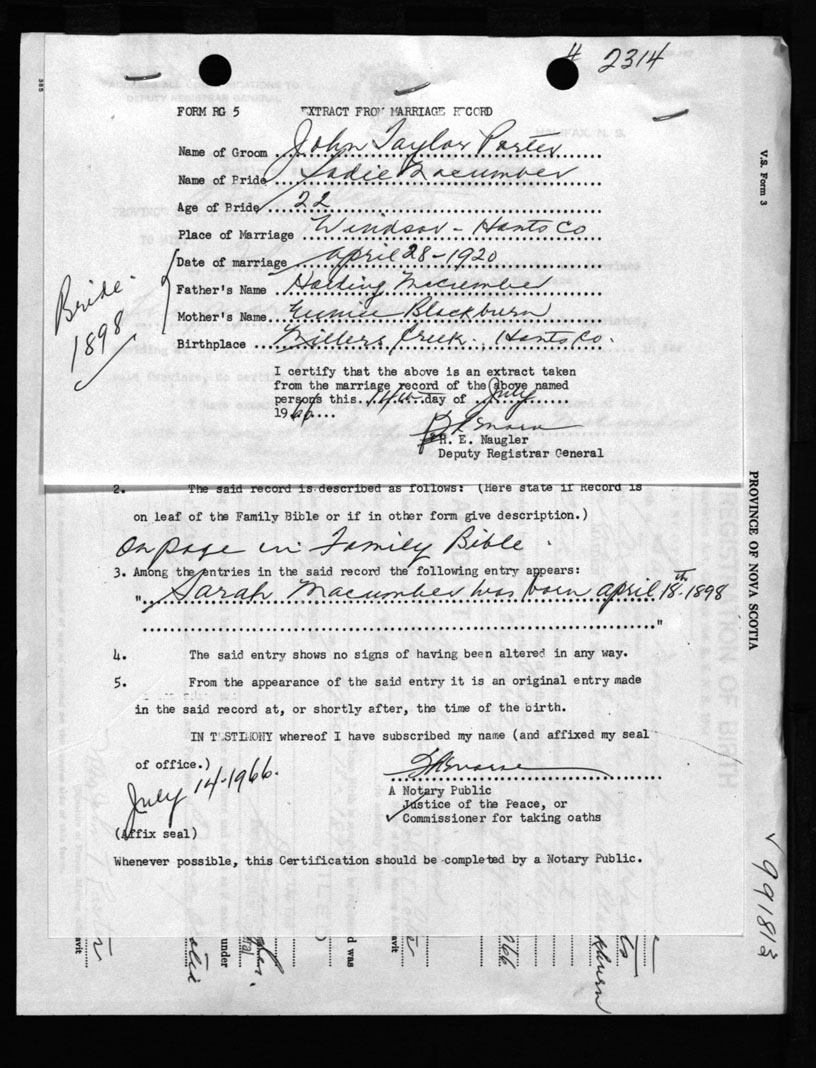 # 2314
FORM RG 5 EXTRACT FROM MARRIAGE RECORD
Name of Groom John Taylor Porter
Name of Bride Sadie Macumber
Age of Bride 22
Place of Marriage Windsor - Hants Co
Date of marriage April 28-1920
Father's Name Harding Macumber
Mother's Name Eunice Blackburn
Birthplace Millers Creek, Hants Co.
Bride.
1898
I certify that the above is an extract taken
from the marriage record of the above named
persons this 14th day of July
1966
H. E. Naugler
Deputy Registrar General
2. The said record is described as follows: (Here state if Record is
on leaf of the Family Bible or if in other form give description.)
On page in Family Bible.
3. Among the entries in the said record the following entry appears:
" Sarah Macumber was born April 18th-1898
"
4. The said entry shows no signs of having been altered in any way.
5. From the appearance of the said entry it is an original entry made
in the said record at, or shortly after, the time of the birth.
IN TESTIMONY whereof I have subscribed my name (and affixed my seal
of office.)
July 14-1966.
A Notary Public
Justice of the Peace, or
✓ Commissioner for taking oaths
(Affix seal)
Whenever possible, this Certification should be completed by a Notary Public.
V.S. Form 3
PROVINCE OF NOVA SCOTIA
REGISTRATION OF BIRTH
✓ 991813
avit
under
d was
avit